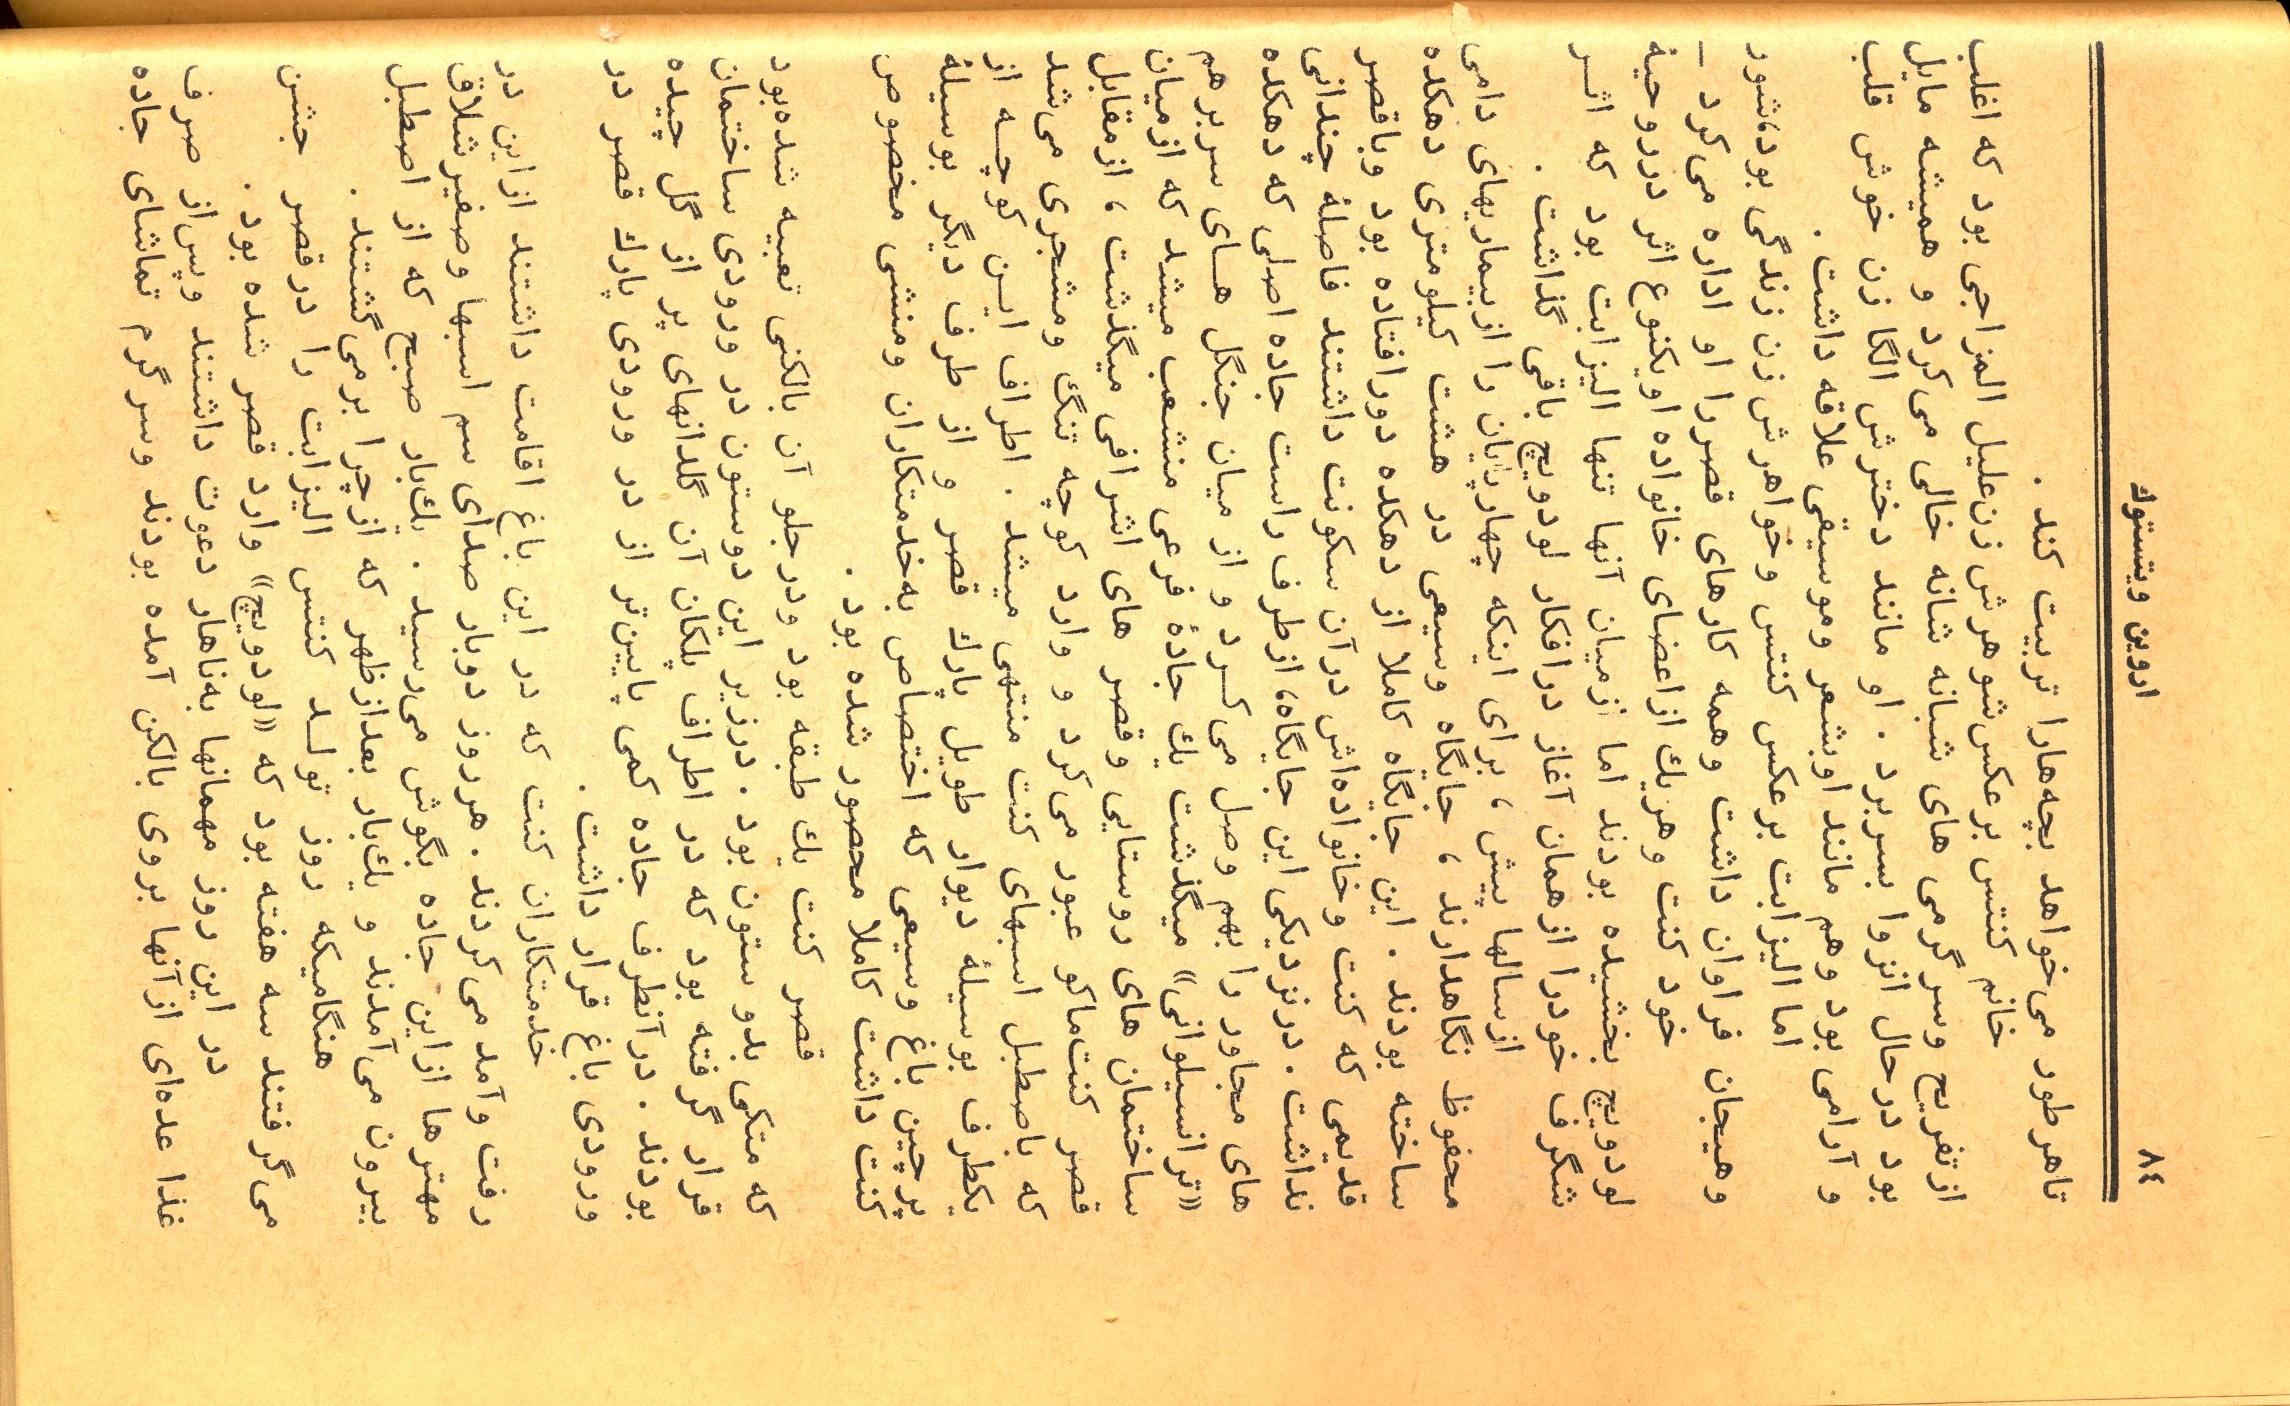 ٨٤
ادوین ویستوك
تاهرطور می‌خواهد بچه‌هارا تربیت کند .
خانم کنتس برعکس‌شوهرش زن‌علیل المزاجی بود که اغلب
ازتفریح وسرگرمی های شبانه شانه خالی می‌کرد و همیشه مایل
بود درحال انزوا بسربرد . او مانند دخترش الگا زن خوش قلب
و آرامی بود وهم مانند اوبشعر وموسیقی علاقه داشت .
اما الیزابت برعکس کنتس وخواهرش زن زندگی بود،شور
وهیجان فراوان داشت وهمه کارهای قصررا او اداره می‌کرد ــ
خود کنت وهریك ازاعضای خانواده اویکنوع اثر درروحیهٔ
لودویچ بخشیده بودند اما ازمیان آنها تنها الیزابت بود که اثـر
شگرف خودرا ازهمان آغاز درافکار لودویچ باقی گذاشت .
ازسالها پیش ، برای اینکه چهارپایان را ازبیماریهای دامی
محفوظ نگاهدارند ، جایگاه وسیعی در هشت کیلومتری دهکده
ساخته بودند . این جایگاه کاملا از دهکده دورافتاده بود وباقصر
قدیمی که کنت وخانواده‌اش درآن سکونت داشتند فاصلهٔ چندانی
نداشت . درنزدیکی این جایگاه، ازطرف راست جاده اصلی که دهکده
های مجاور را بهم وصل می‌کـرد و از میان جنگل هـای سربرهم
«ترانسیلوانی» میگذشت یك جادهٔ فرعی منشعب میشد که ازمیان
ساختمان های روستایی وقصر های اشرافی میگذشت ، ازمقابل
قصر کنت‌ماکو عبور می‌کرد و وارد کوچه تنگ ومشجری می‌شد
که باصطبل اسبهای کنت منتهی میشد . اطراف ایـن کوچـه از
یکطرف بوسیلهٔ دیوار طویل پارك قصر و از طرف دیگر بوسیلهٔ
پرچین باغ وسیعی که اختصاص به‌خدمتکاران ومنشی مخصوص
کنت داشت کاملا محصور شده بود .
قصر کنت یك طبقه بود ودرجلو آن بالکنی تعبیه شده‌بود
که متکی بدو ستون بود . درزیر این دوستون در ورودی ساختمان
قرار گرفته بود که در اطراف پلکان آن گلدانهای پر از گل چیده
بودند . درآنطرف جاده کمی پایین‌تر از در ورودی پارك قصر در
ورودی باغ قرار داشت .
خدمتکاران کنت که در این باغ اقامت داشتند ازاین در
رفت وآمد می‌کردند . هرروز دوبار صدای سم اسبها وصفیرشلاق
مهترها ازاین جاده بگوش می‌رسید . یك‌بار صبح که از اصطبل
بیرون می‌آمدند و یك‌بار بعدازظهر که ازچرا برمی‌گشتند .
هنگامیکه روز تولـد کنتس الیزابت را درقصر جشن
می‌گرفتند سه هفته بود که «لودویچ» وارد قصر شده بود .
در این روز مهمانها به‌ناهار دعوت داشتند وپس‌از صرف
غذا عده‌ای ازآنها بروی بالکن آمده بودند وسرگرم تماشای جاده